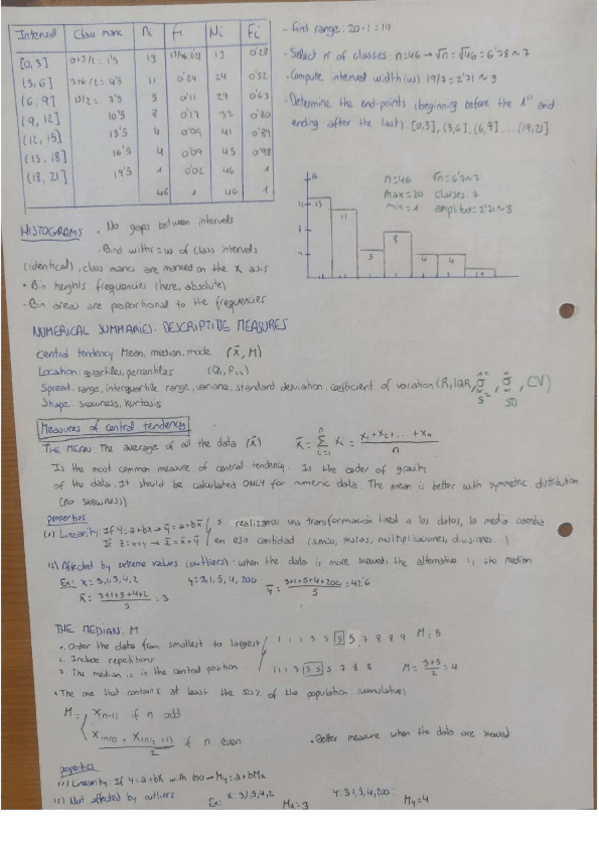 Interval Class mark ni fi Ni Fi
[0,3] 0+3/2 = 1'5 13 13/46 = 0,28 13 0'28
(3,6] 3+6/2 = 4'5 11 0'24 24 0'52
(6,9] 15/2 = 7'5 5 0'11 29 0'63
(9,12] 10'5 8 0'17 37 0'80
(12,15] 13'5 4 0'09 41 0'89
(15,18] 16'5 4 0'09 45 0'98
(18,21] 19'5 1 0'02 46 1
46 1 46 1
- Find range: 20-1=19
- Select nº of classes: n=46 → √n = √46 = 6'78 ≈ 7
- Compute interval width (w): 19/7 = 2'71 ≈ 3
- Determine the end-points (beginning before the 1st and
ending after the last): [0,3], (3,6], (6,9] ... (19,21]
n=46 √n = 6'7≈7
max=20 classes: 7
min=1 amplitud=2'71≈3
13
11
5
8
4
4
1
HISTOGRAMS
. No gaps between intervals
. Bind withs = w of class intervals
(identical), class marks are marked on the X axis
. Bin heights: frequencies (here, absolute)
. Bin areas are proportional to the frequencies
NUMERICAL SUMMARIES: DESCRIPTIVE MEASURES
Central tendency: Mean, median, mode (x̄, M)
Location: quartiles, percentiles (Q1, Pn)
Spread: range, interquartile range, variance, standard deviation, coefficient of variation (R, IQR, σ̂², σ̂, CV)
S² SD
Shape: skewness, kurtosis
Measures of central tendency
THE MEAN: The average of all the data (x̄) x̄ = Σ xi = x1 + x2 + ... + xn / n
Is the most common measure of central tendency. Is the center of gravity
of the data. It should be calculated ONLY for numeric data. The mean is better with symmetric distribution
(no skewness)
properties
(1) Linearity: If Y = a+bx → ȳ = a+bx̄ / si realizamos una transformación lineal a los datos, la media cambia
If Z = x+y → z̄ = x̄+ȳ / en esa cantidad (sumas, restas, multiplicaciones, divisiones..)
(2) Affected by extreme values (outliers): when the data is more skewed, the alternative is the median
Ex: X = 3,1,5,4,2 Y = 3,1,5,4,200 ȳ = 3+1+5+4+200 / 5 = 42'6
x̄ = 3+1+5+4+2 / 5 = 3
THE MEDIAN: M
1. Order the data from smallest to largest / 1 1 1 3 3 5 5 7 8 8 9 M = 5
2. Include repetitions
3. The median is in the central position / 1 1 3 3 5 5 7 8 8 M = 3+5 / 2 = 4
. The one that contains at least the 50% of the population (cumulative)
M = X(n+1) if n odd
X(n/2) + X(n/2 +1) / 2 if n even
. Better measure when the data are skewed
properties
(1) Linearity: If Y = a+bX with b>0 → My = a+bMx
(2) Not affected by outliers Ex: X: 3,1,5,4,2 Mx = 3 Y: 3,1,5,4,200: My = 4